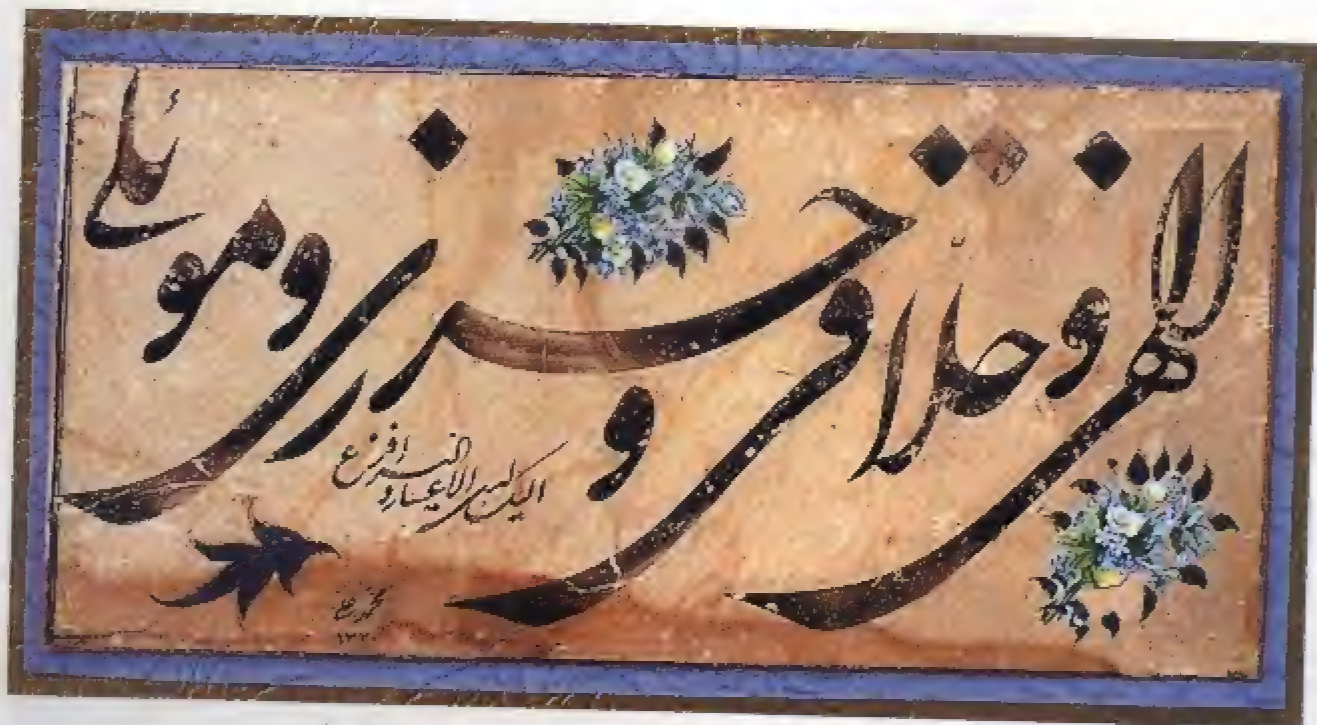 الهی و خلاقی و حرزی و موئلی
الیک لدی الاعسار و الیسر افزع
محمد علی